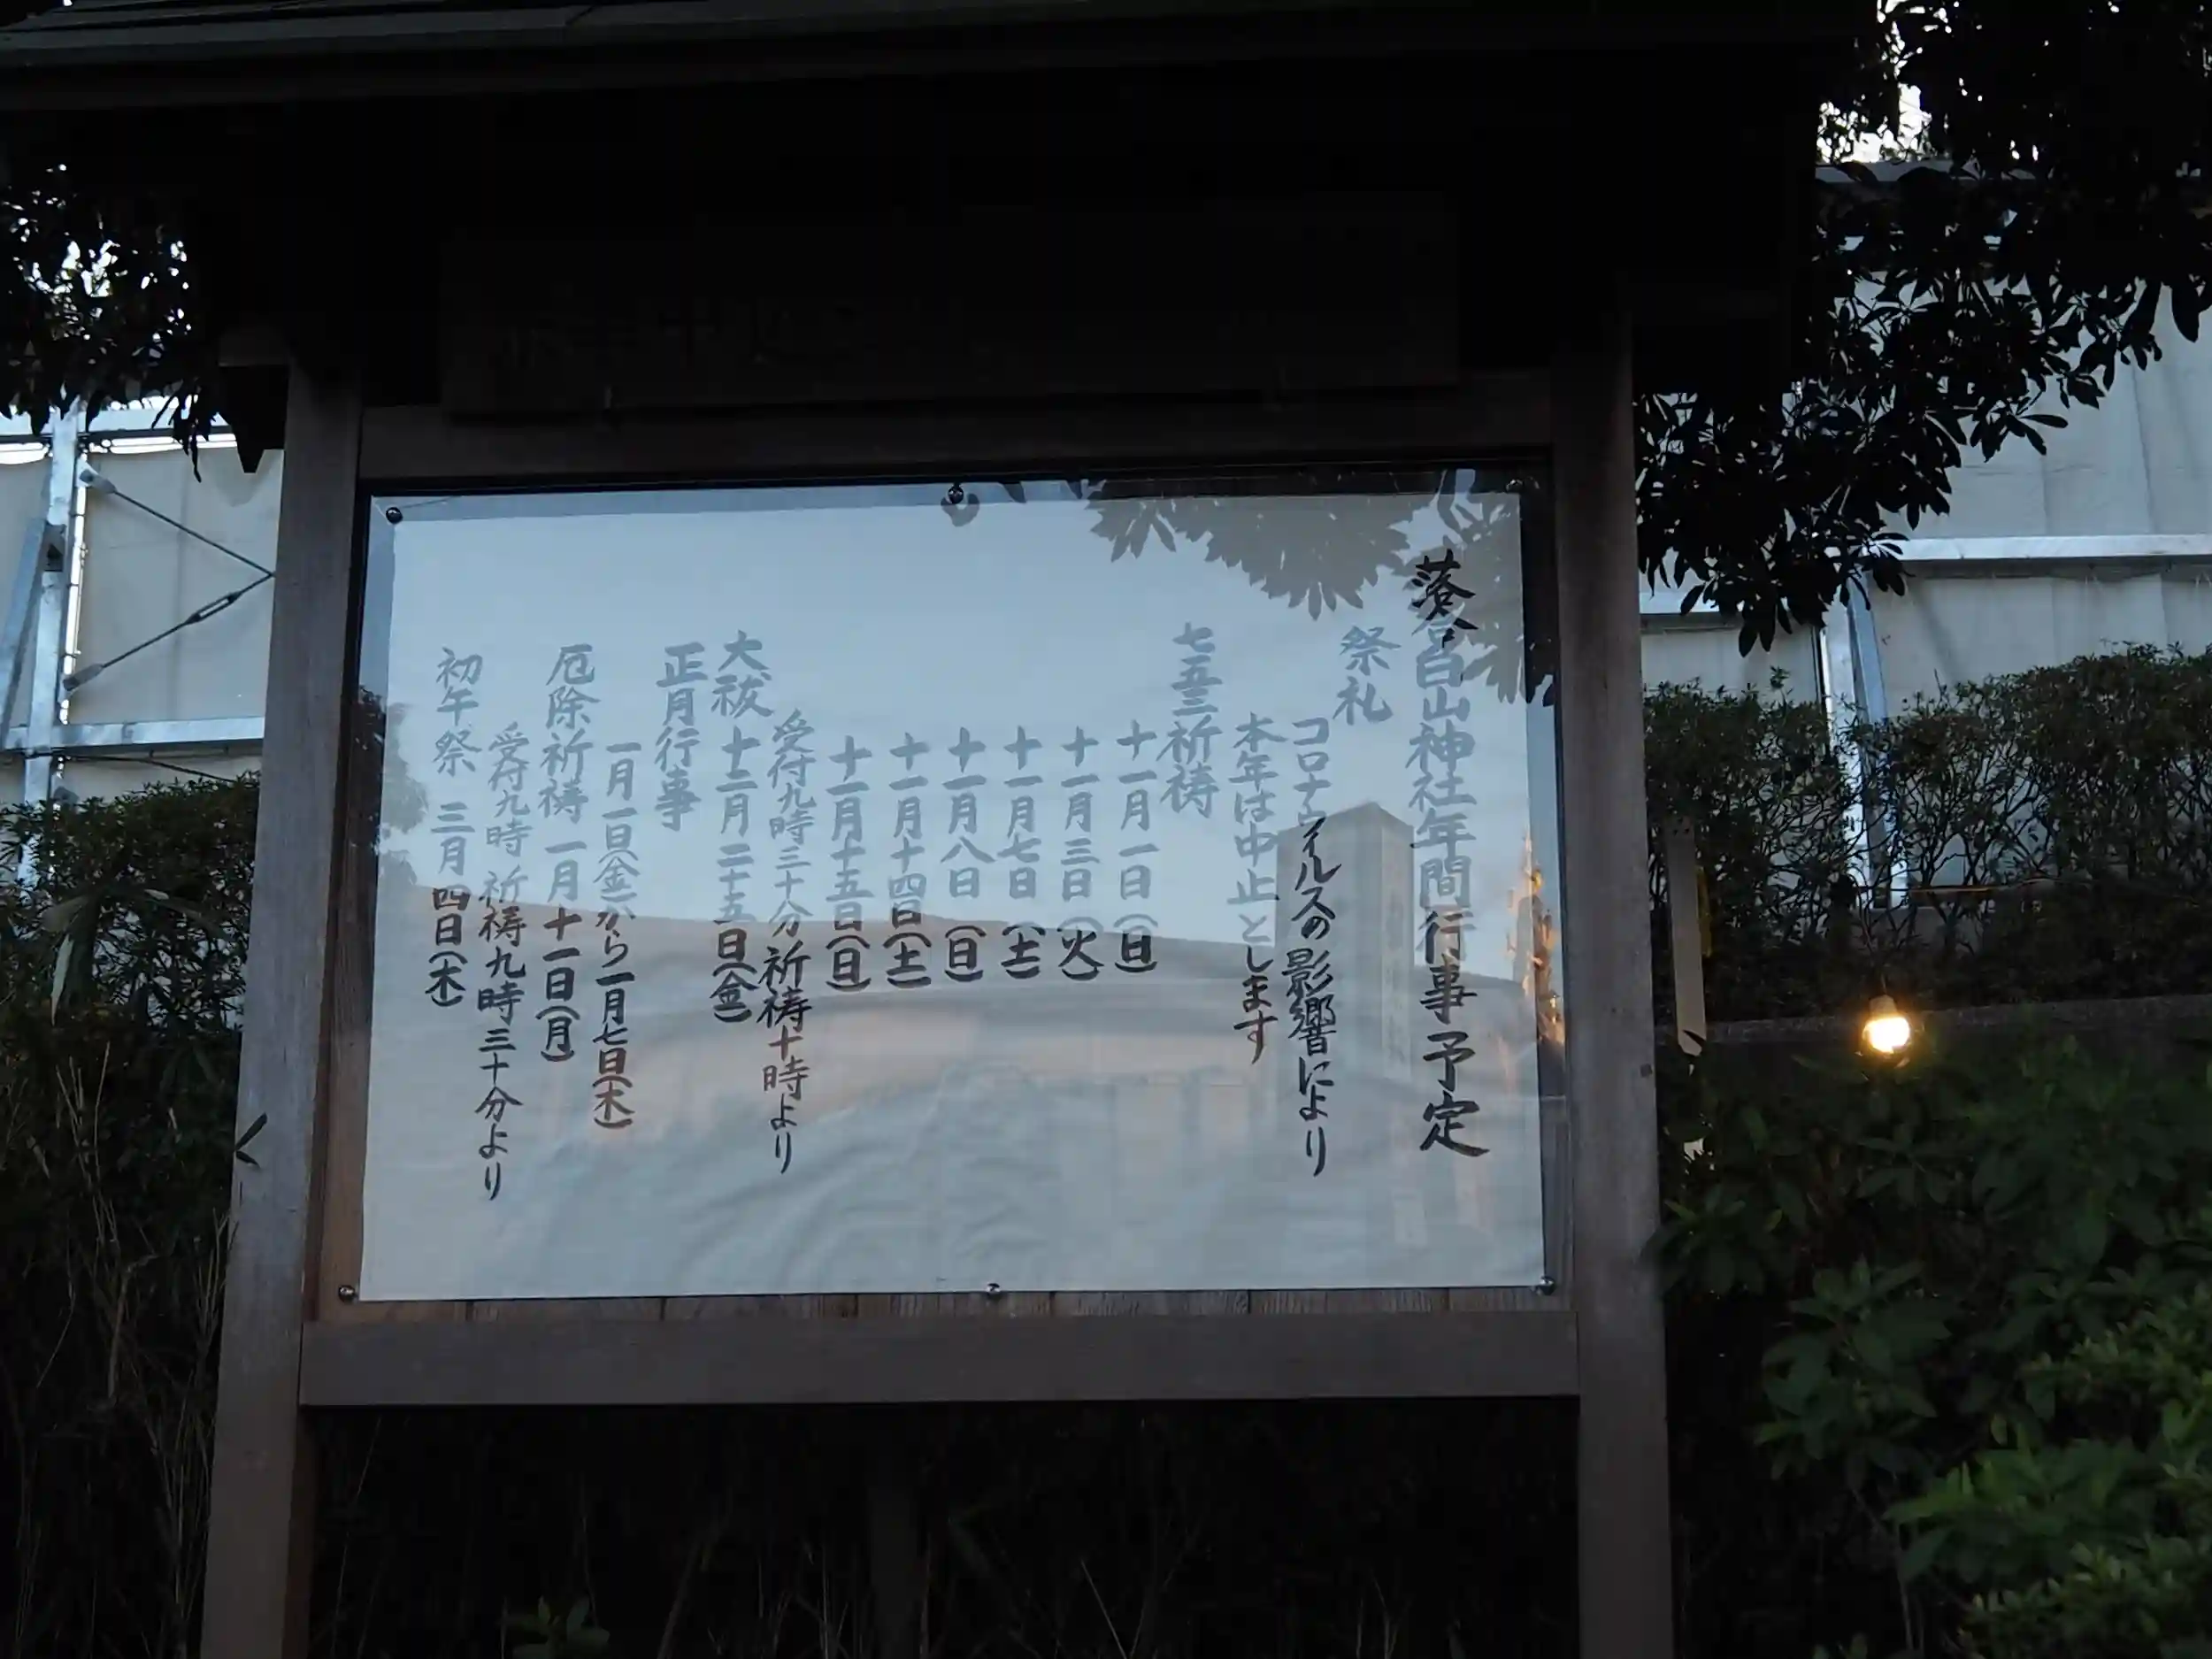 落合白山神社年間行事予定
祭礼
コロナウイルスの影響により
本年は中止とします
七五三祈祷
十一月一日(日)
十一月三日(火)
十一月七日(土)
十一月八日(日)
十一月十四日(土)
十一月十五日(日)
受付九時三十分祈祷十時より
大祓 十二月二十五日(金)
正月行事
一月一日(金)から一月七日(木)
厄除祈祷 一月十一日(月)
受付九時 祈祷九時三十分より
初午祭 三月四日(木)